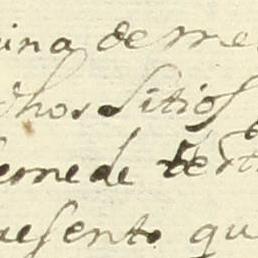 ina de me
dhos Sitios
se me de
presento qu